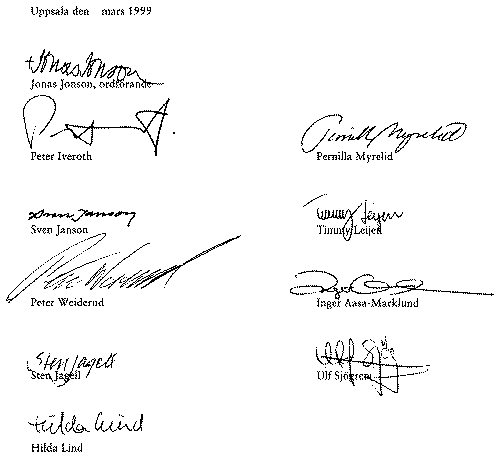 Uppsala den mars 1999
Jonas Jonson
Jonas Jonson, ordförande
Peter Iveroth
Pernilla Myrelid
Pernilla Myrelid
Sven Janson
Sven Janson
Timmy Leijen
Timmy Leijen
Peter Weiderud
Peter Weiderud
Inger Aasa-Marklund
Sten Jagell
Sten Jagell
Ulf Sjögren
Hilda Lind
Hilda Lind